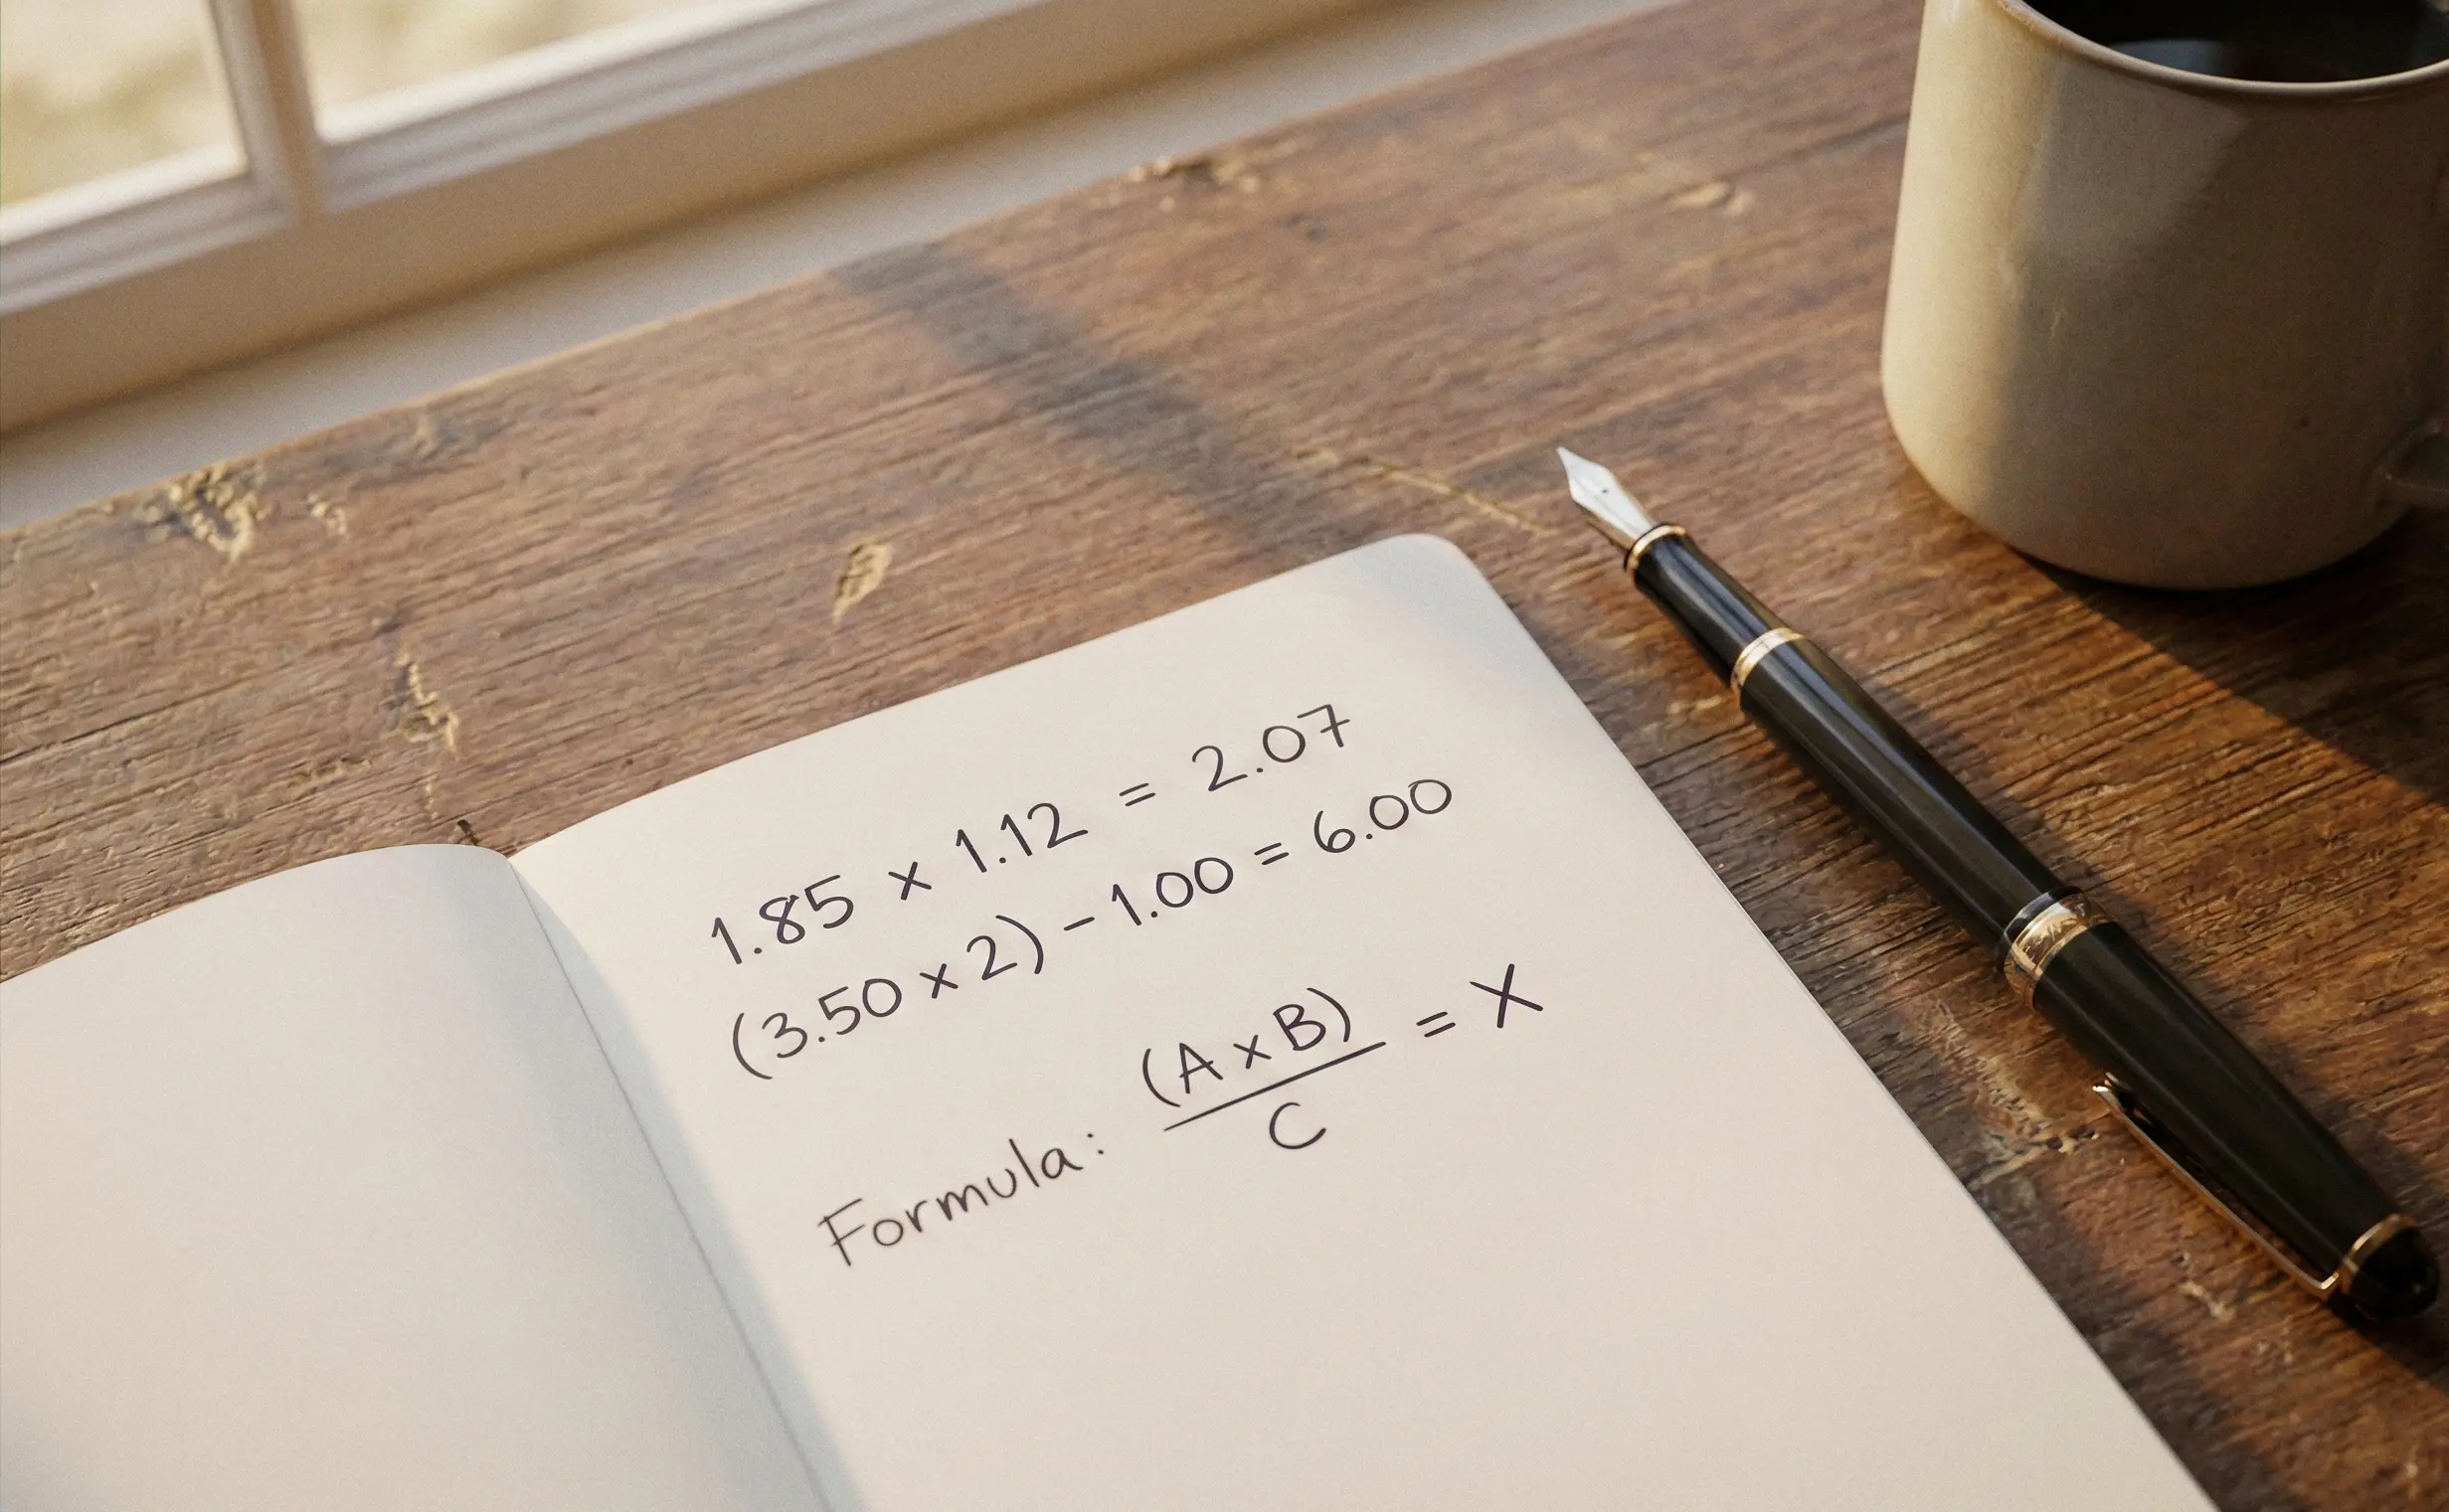 1.85 × 1.12 = 2.07
(3.50 × 2) - 1.00 = 6.00
Formula: (A × B) / C = X